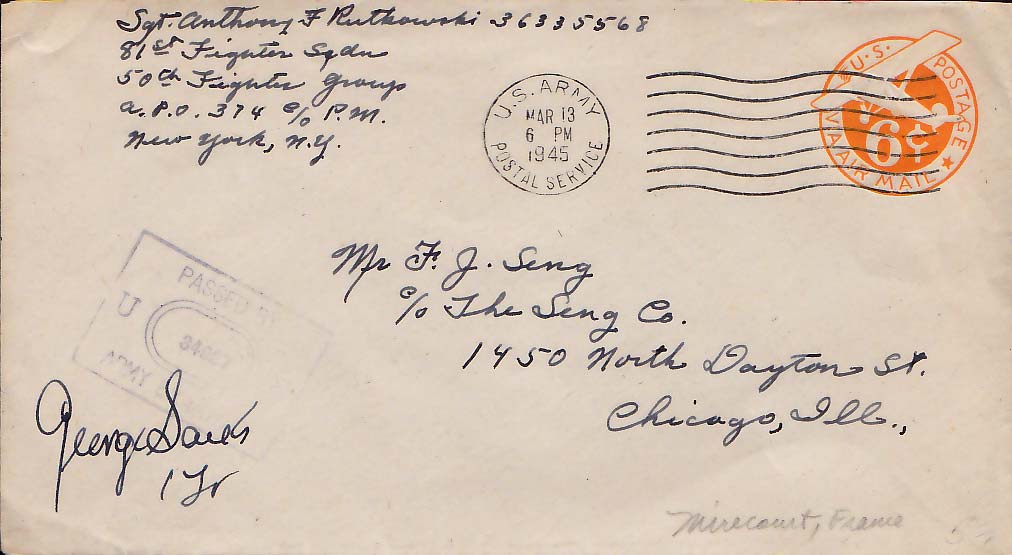 Sgt. Anthony F Rutkowski 36335568
81st Fighter Sqdn
50th Fighter Group
A.P.O. 374 c/o P.M.
New York, N.Y.
U.S. ARMY
MAR 13
6 PM
1945
POSTAL SERVICE
U.S. POSTAGE
6¢
VIA AIR MAIL
Mr F. J. Seng
c/o The Seng Co.
1450 North Dayton St.
Chicago, Ill.,
PASSED
U
ARMY
George
Mirecourt, France